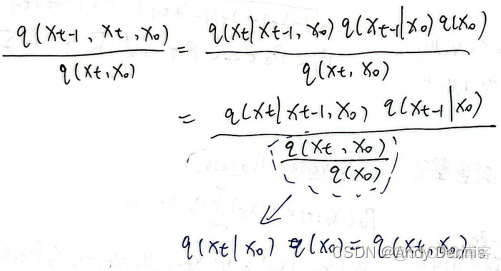 q(xt-1, xt, x0) / q(xt, x0) = q(xt|xt-1, x0) q(xt-1|x0) q(x0) / q(xt, x0)
= q(xt|xt-1, x0) q(xt-1|x0) / (q(xt, x0) / q(x0))
q(xt|x0) q(x0) = q(xt, x0)
CSDN @Andy Dennis